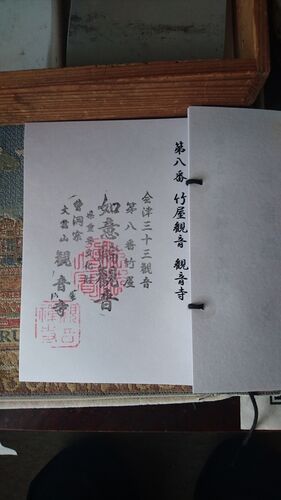 第八番 竹屋観音 観音寺
会津三十三観音
第八番竹屋
如意輪観音
県重要文化財
曹洞宗
大雲山 観音寺